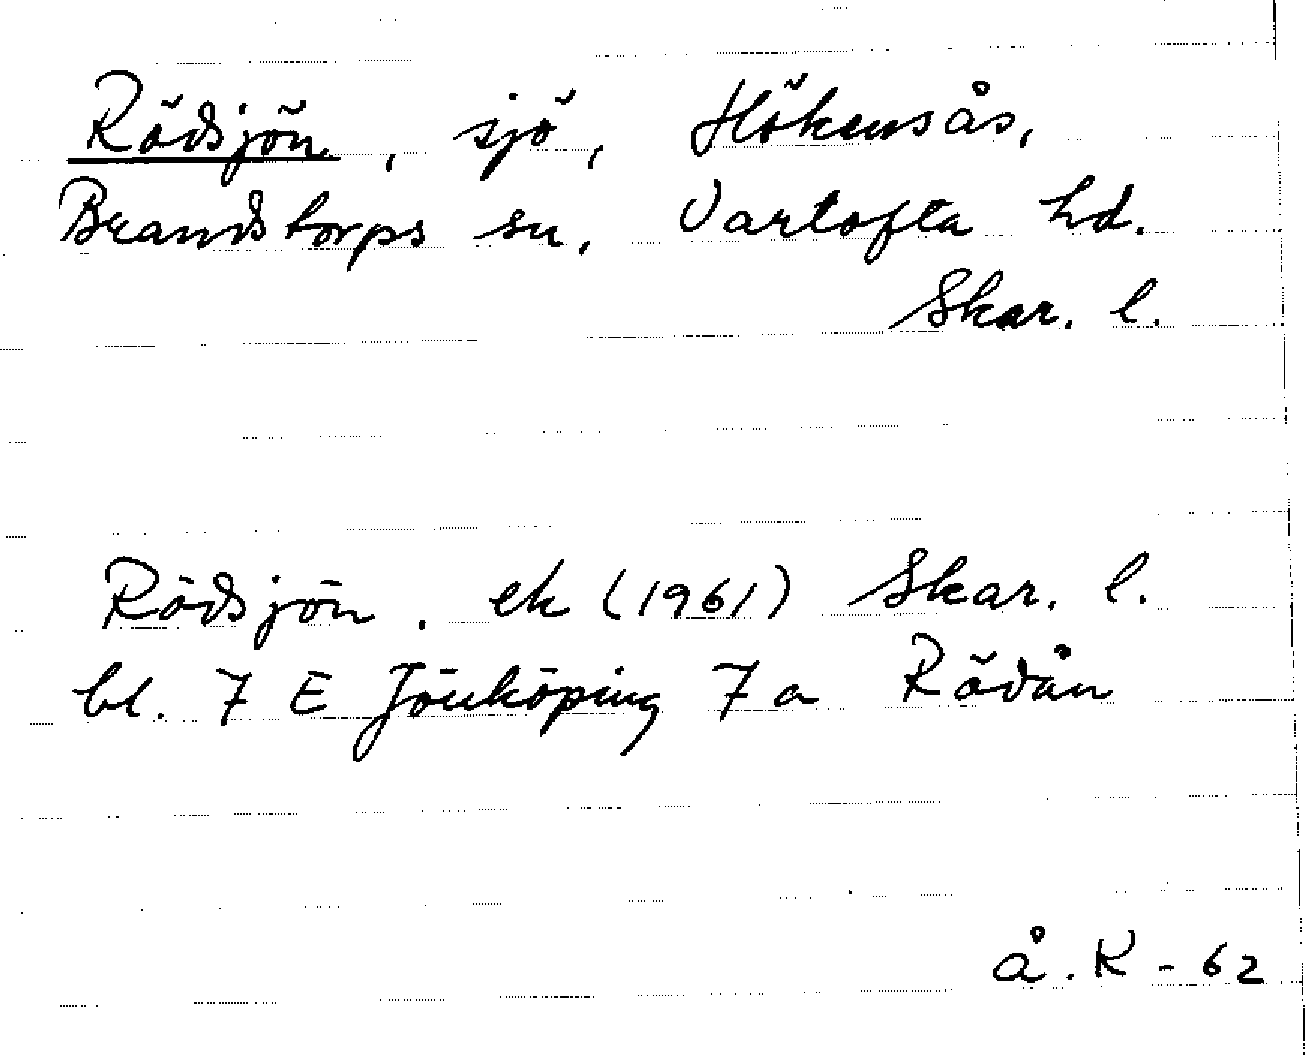 Rödsjön, sjö, Hökensås,
Brandstorps sn, Vartofta hd.
Skar. l.
Rödsjön. ek (1961) Skar. l.
bl. 7 E Jönköping 7 a Rödån
å. K - 62